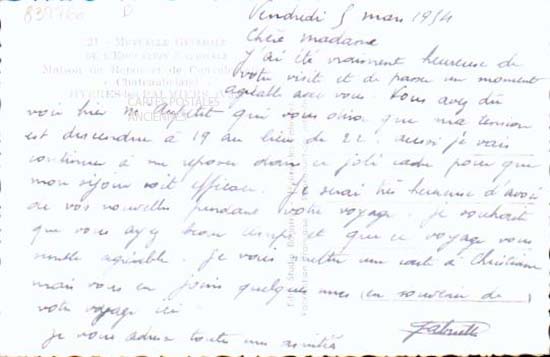 839766 D
Vendredi 5 mars 1954
Chère Madame
21 - MUTUELLE GÉNÉRALE
DE L'EDUCATION NATIONALE
Maison de Repos et de
"Chateaubriand"
HYÈRES-les-PALMIERS
CARTES POSTALES
ANCIENNES
J'ai été vraiment heureuse de
votre visit et de passer un moment
agréable avec vous. Vous avez dû
voir hier M. qui vous dira que ma tension
est descendue à 19 au lieu de 22. aussi je vais
continuer à me reposer dans ce joli cadre pour que
mon séjour soit efficace. Je serai très heureuse d'avoir
de vos nouvelles pendant votre voyage. je souhaite
que vous ayez beau temps et que ce voyage vous
semble agréable. Je vous une carte à Christiane
mais vous en joins quelques unes (en souvenir de
votre voyage ici.
Je vous adresse toute mon amitié
Gabrielle